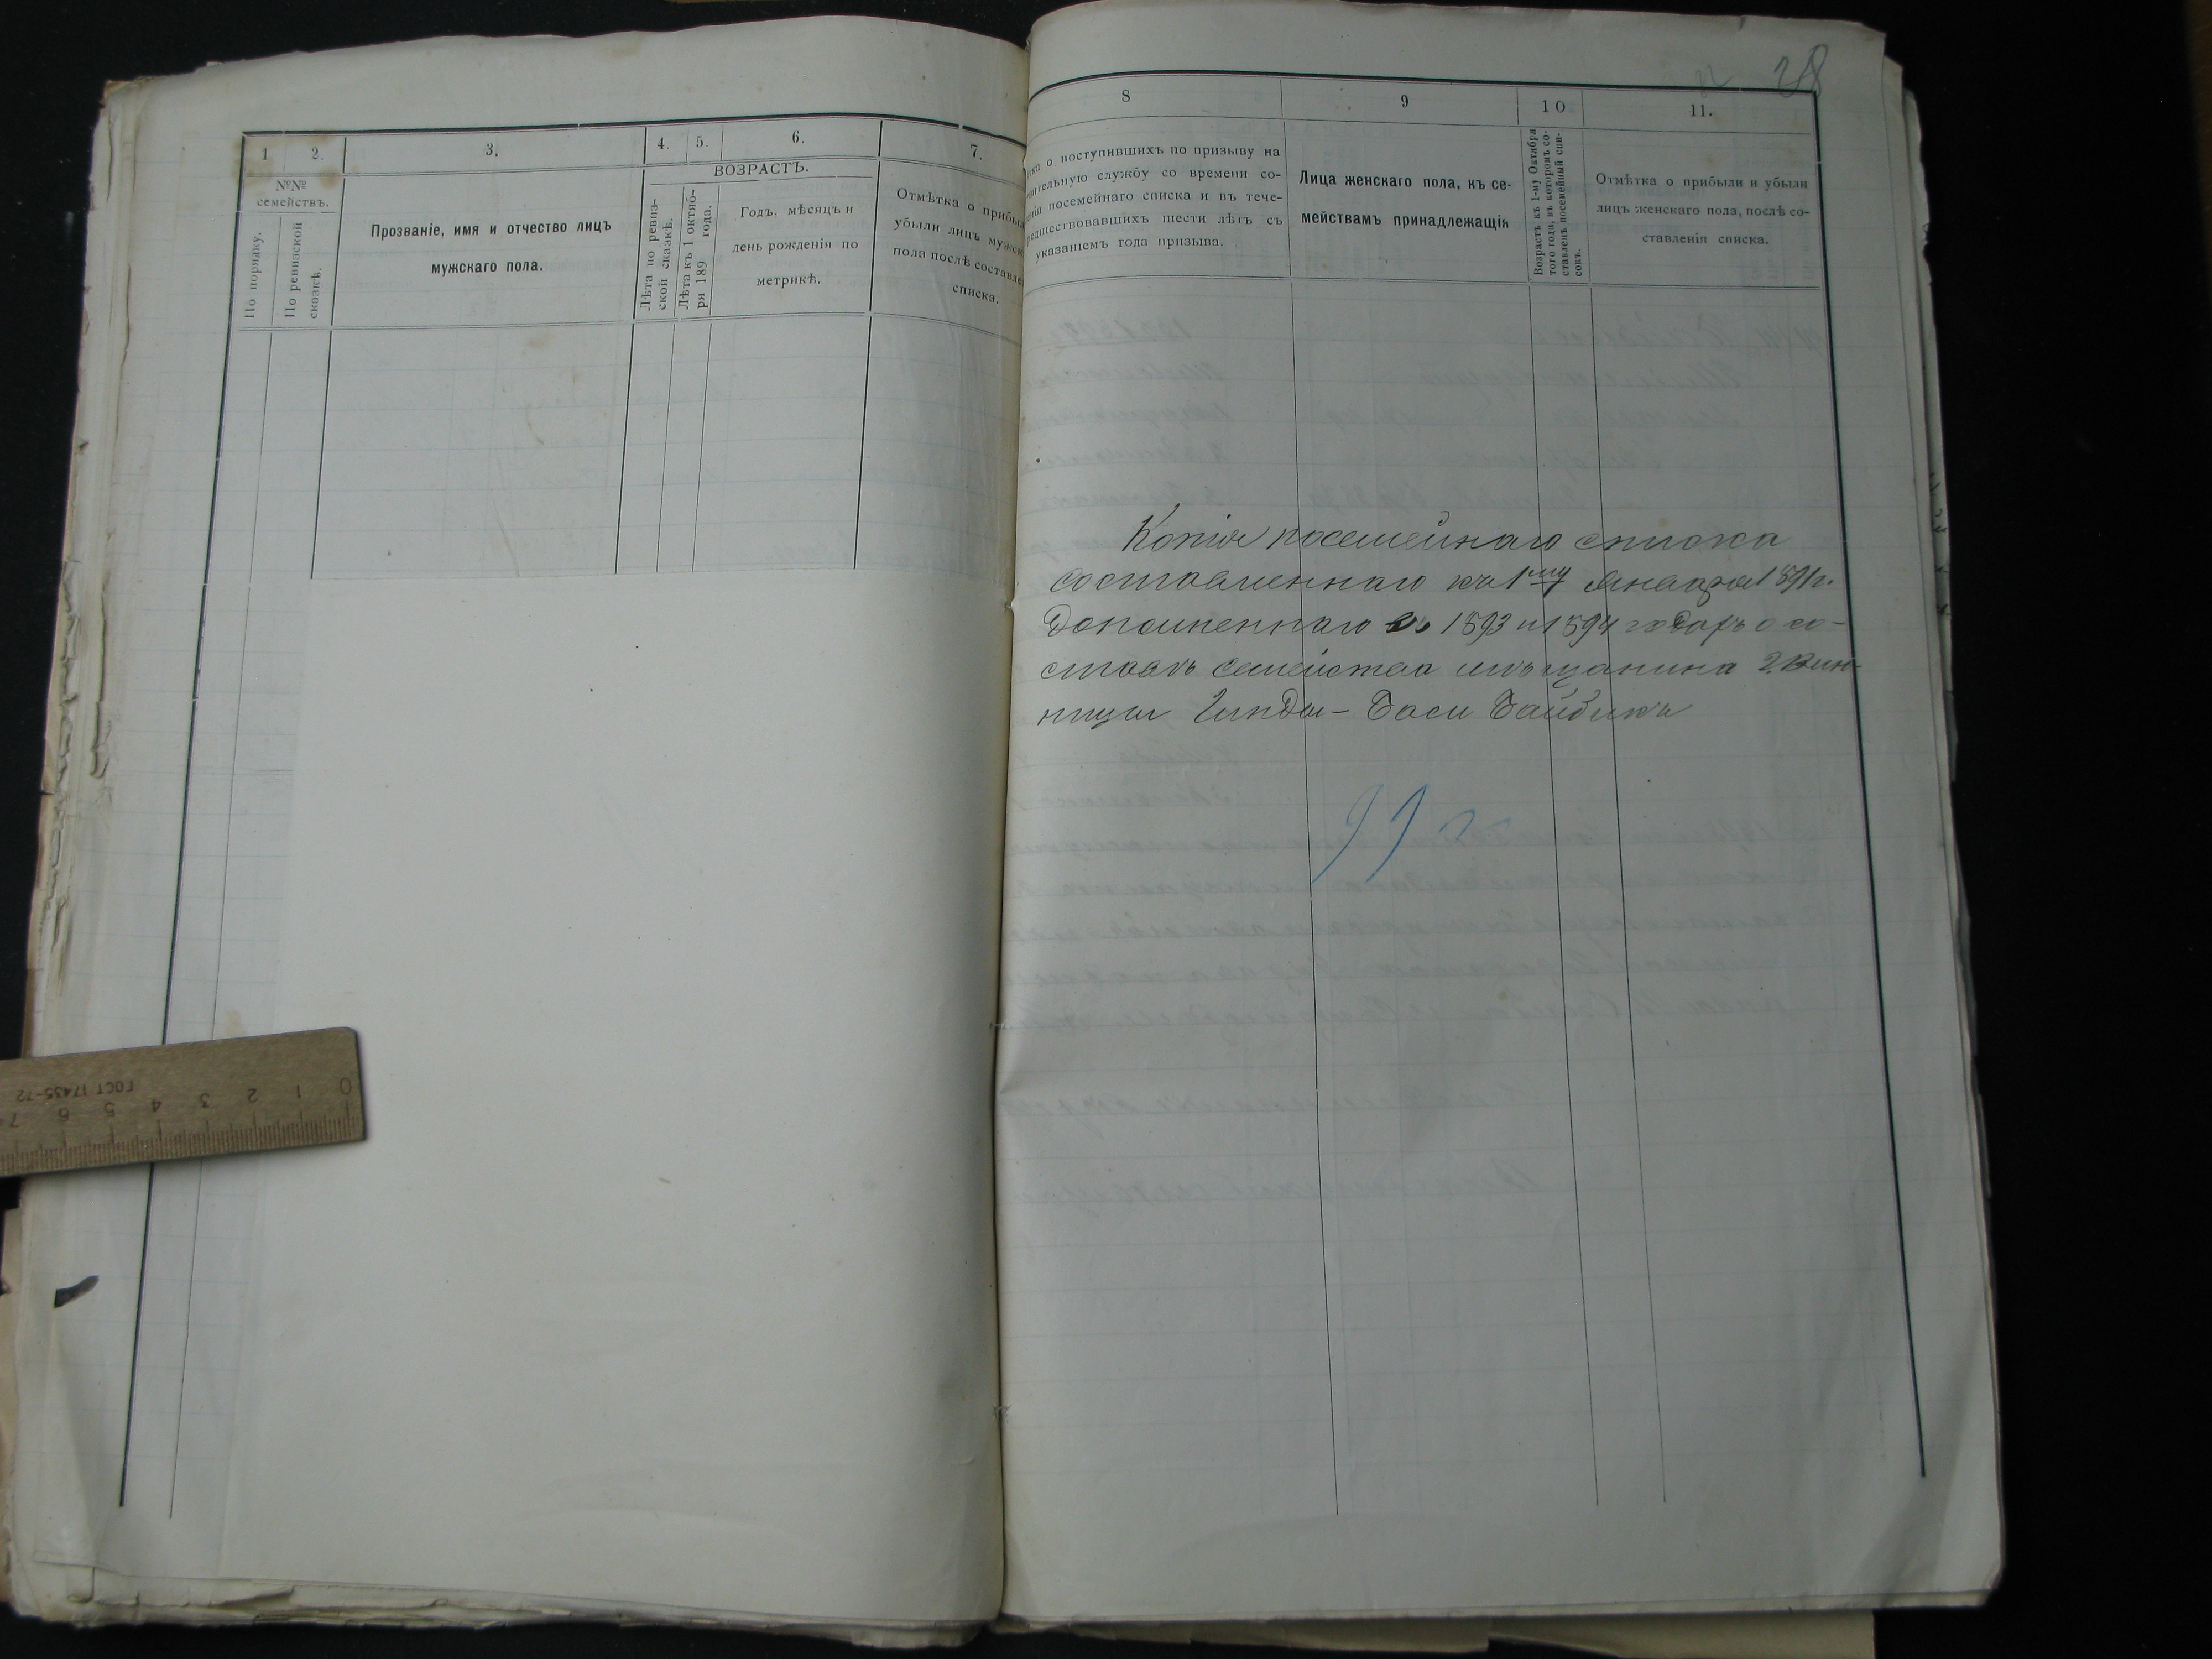 28
1
2.
3.
4.
5.
6.
7.
№№
семействъ.
По порядку.
По ревизской
сказкѣ.
Прозваніе, имя и отчество лицъ
мужскаго пола.
ВОЗРАСТЪ.
Лѣта по ревиз-
ской сказкѣ.
Лѣта къ 1 октяб-
ря 189 года.
Годъ, мѣсяцъ и
день рожденія по
метрикѣ.
Отмѣтка о прибы
убыли лицъ мужск
пола послѣ составле
списка.
8
9
10
11.
тка о поступившихъ по призыву на
ительную службу со времени со-
нія посемейнаго списка и въ тече-
редшествовавшихъ шести лѣтъ съ
указаніемъ года призыва.
Лица женскаго пола, къ се-
мействамъ принадлежащія
Возрастъ къ 1-му Октября
того года, въ которомъ со-
ставленъ посемейный спи-
сокъ.
Отмѣтка о прибыли и убыли
лицъ женскаго пола, послѣ со-
ставленія списка.
Копія посемейнаго списка
составленнаго къ 1му Января 1891 г.
Дополненнаго въ 1893 и 1894 годахъ о со-
ставѣ семейства мѣщанина г. Вин-
ницы Баси Байбикъ
ГОСТ 17435-72
0 1 2 3 4 5 6 7